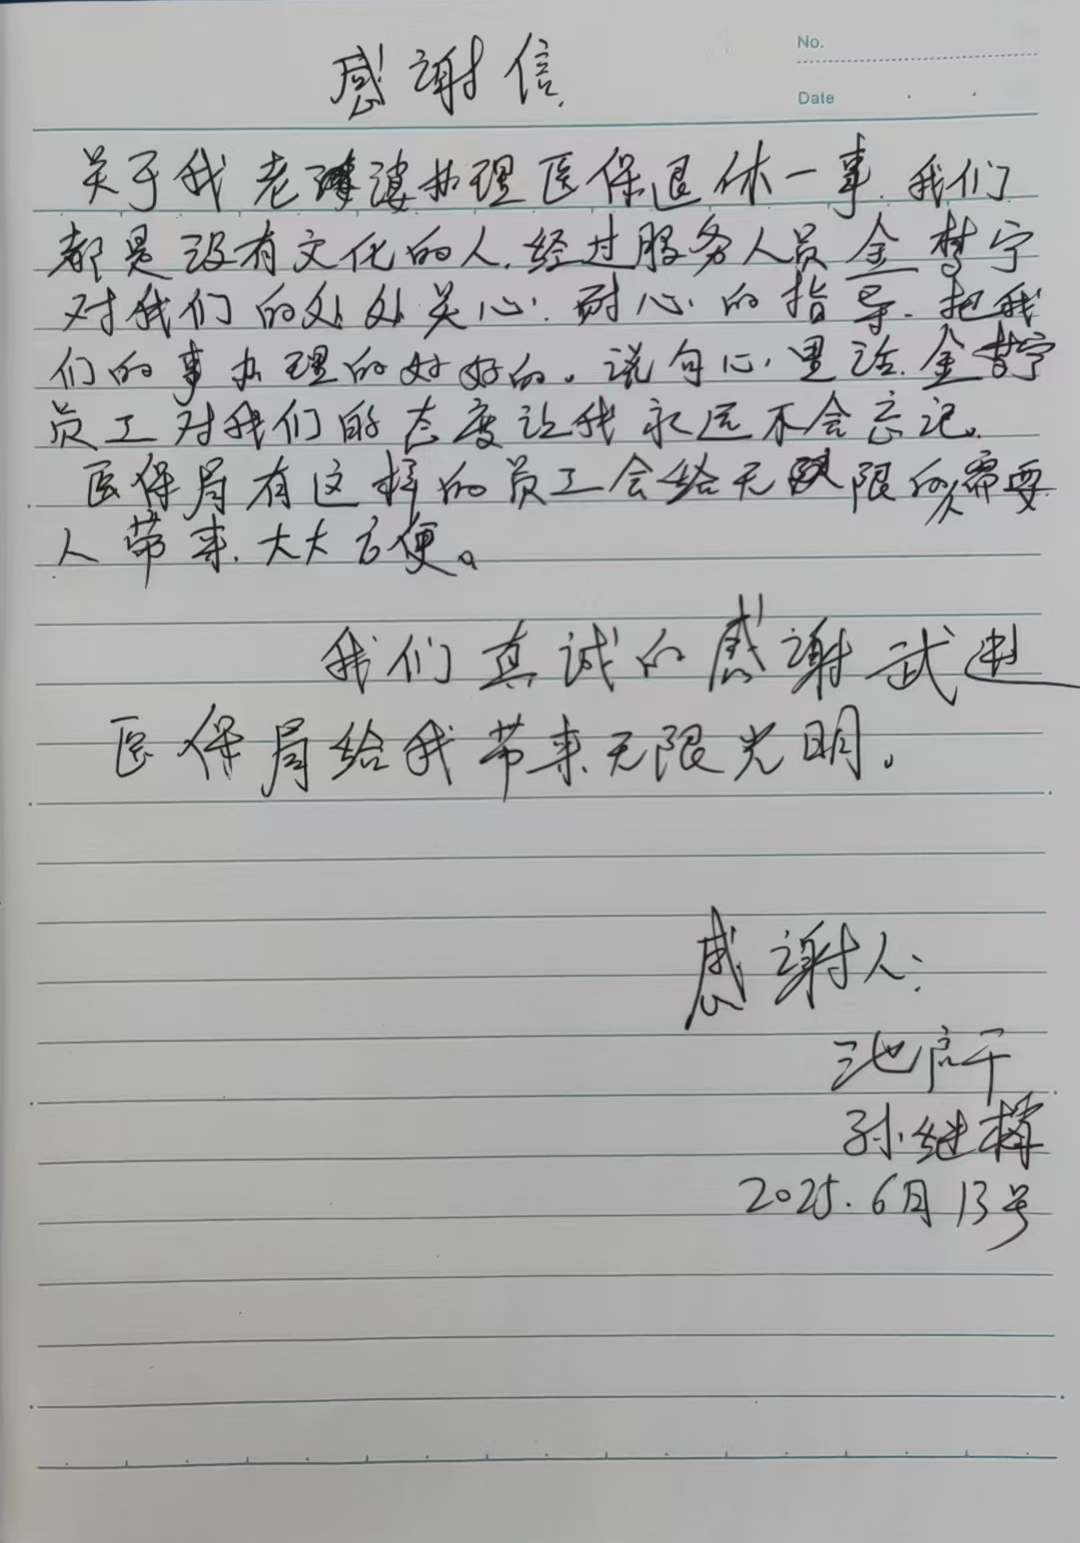 No.
Date
感谢信
关于我老婆办理医保退休一事.我们
都是没有文化的人.经过服务人员金梦宁
对我们的处处关心.耐心的指导.把我
们的事办理的好好的。说句心里话.金梦宁
员工对我们的态度让我永远不会忘记。
医保局有这样的员工会给无限的需要
人带来.大大方便。
我们真诚的感谢武进
医保局给我带来无限光明。
感谢人:
池启干
孙继
2025.6月13号